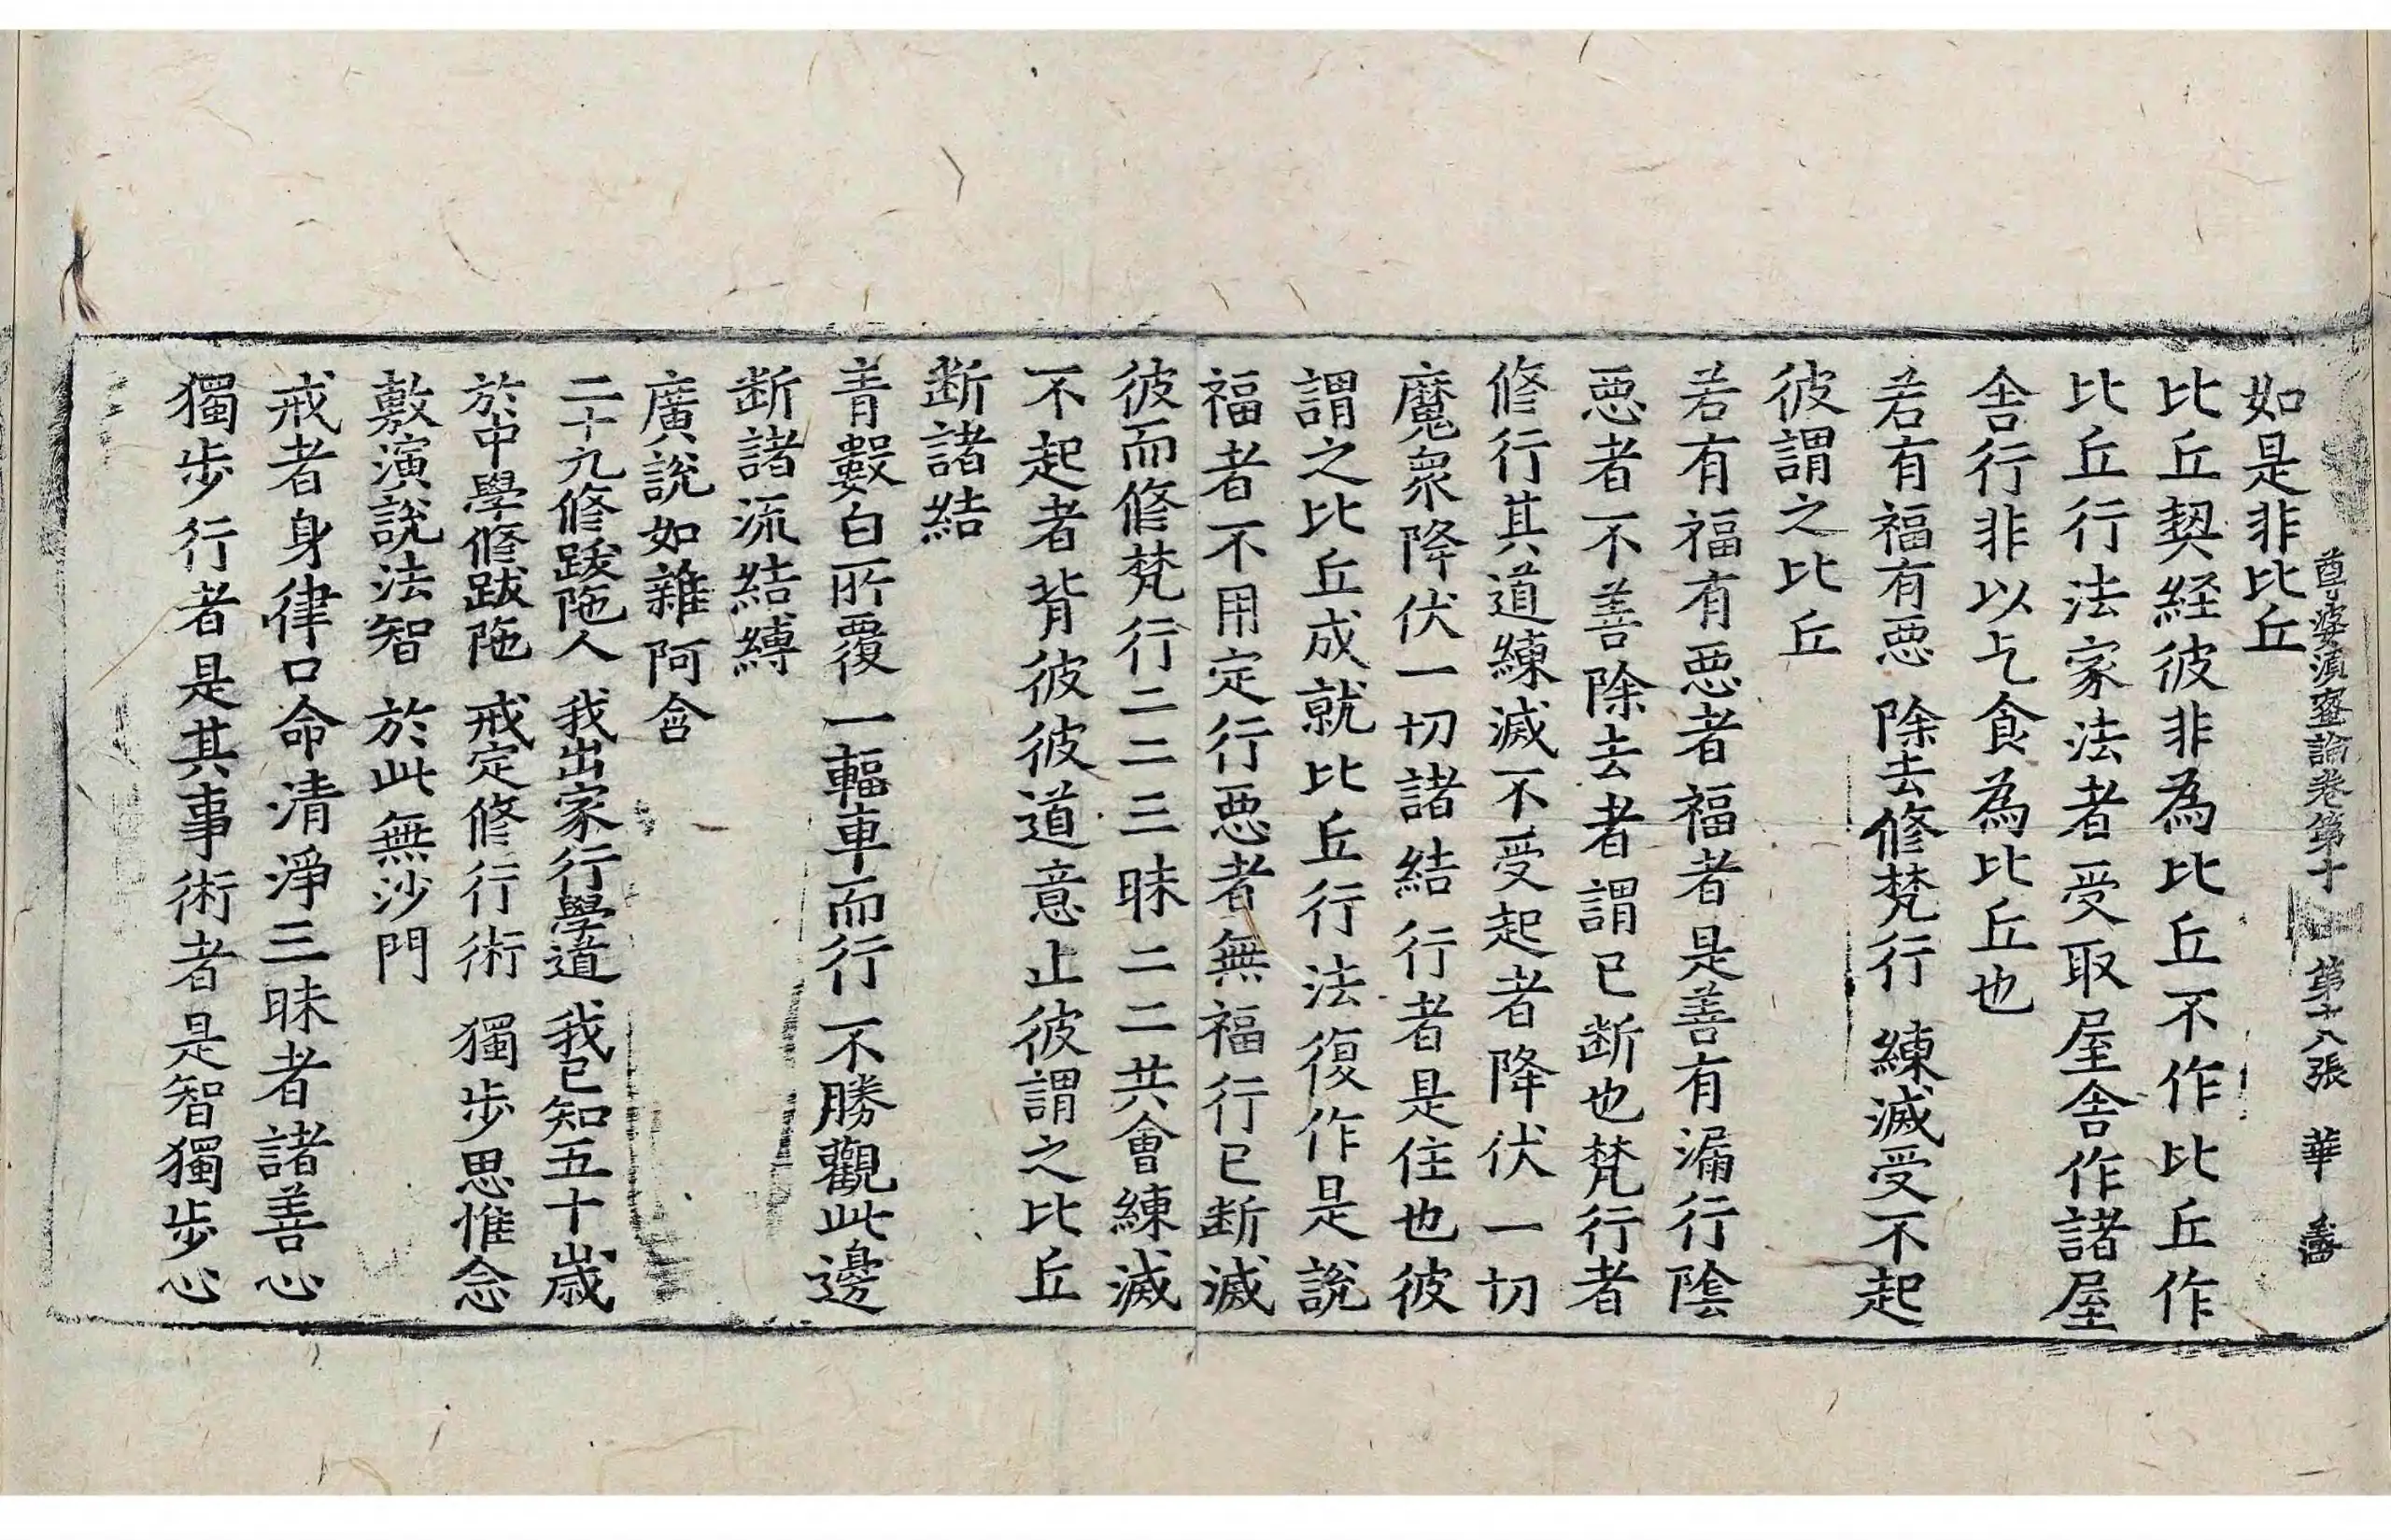 尊婆湏蜜論卷第十 第十八張 華
如是非比丘
比丘契経彼非為比丘不作比丘作
比丘行法家法者受取屋舎作諸屋
舎行非以乞食為比丘也
若有福有悪 除去修梵行 練滅受不起
彼謂之比丘
若有福有悪者福者是善有漏行陰
悪者不善除去者謂已断也梵行者
修行其道練滅不受起者降伏一切
魔衆降伏一切諸結行者是住也彼
謂之比丘成就比丘行法復作是說
福者不用定行悪者無福行已断滅
彼而修梵行二二三昧二二共會練滅
不起者背彼彼道意止彼謂之比丘
断諸結
青數白所覆 一輻車而行 不勝觀此邊
断諸流結縛
廣說如雜阿含
二十九修跋陁人 我出家行學道 我已知五十歳
於中學修跋陁 戒定修行術 獨步思惟念
敷演說法智 於此無沙門
戒者身律口命清淨三昧者諸善心
獨步行者是其事術者是智獨步心